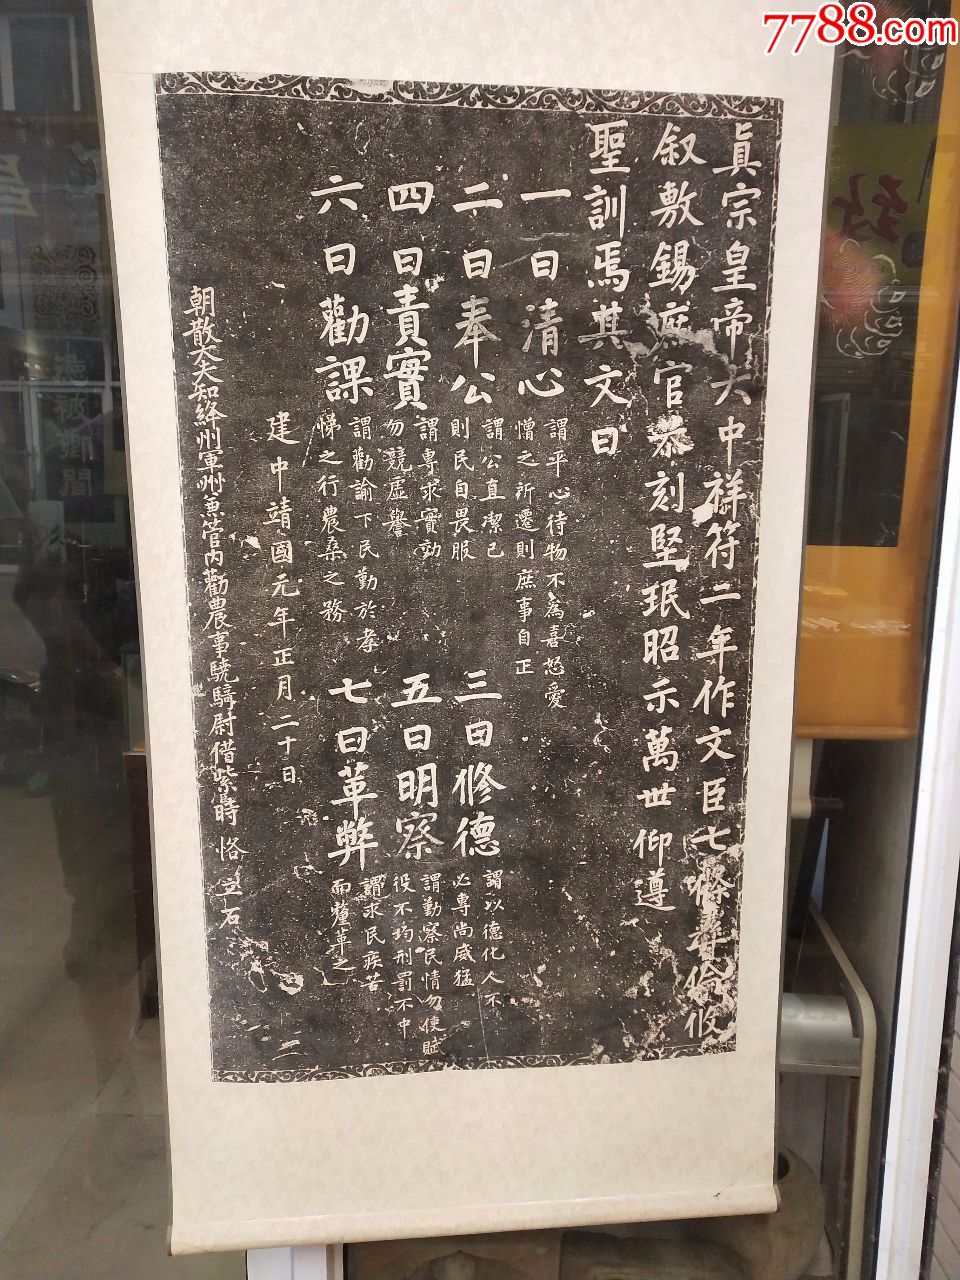 7788.com
真宗皇帝大中祥符二年作文臣七條彝倫攸
叙敷錫庶官恭刻堅珉昭示萬世仰遵
聖訓焉其文曰
一曰清心
謂平心待物不為喜怒愛
憎之所遷則庶事自正
二曰奉公
謂公直潔己
則民自畏服
三曰修德
謂以德化人不
必專尚威猛
四曰責實
謂專求實効
勿競虛譽
五曰明察
謂勤察民情勿使賦
役不均刑罰不中
六曰勸課
謂勸諭下民勤於孝
悌之行農桑之務
七曰革弊
謂求民疾苦
而釐革之
建中靖國元年正月二十日
朝散大夫知絳州軍州兼管內勸農事驍騎尉借紫時恪立石
二